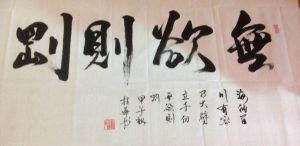 無欲則剛
海納百
川有容
乃大壁
立千仞
無欲則
剛
甲午秋
書